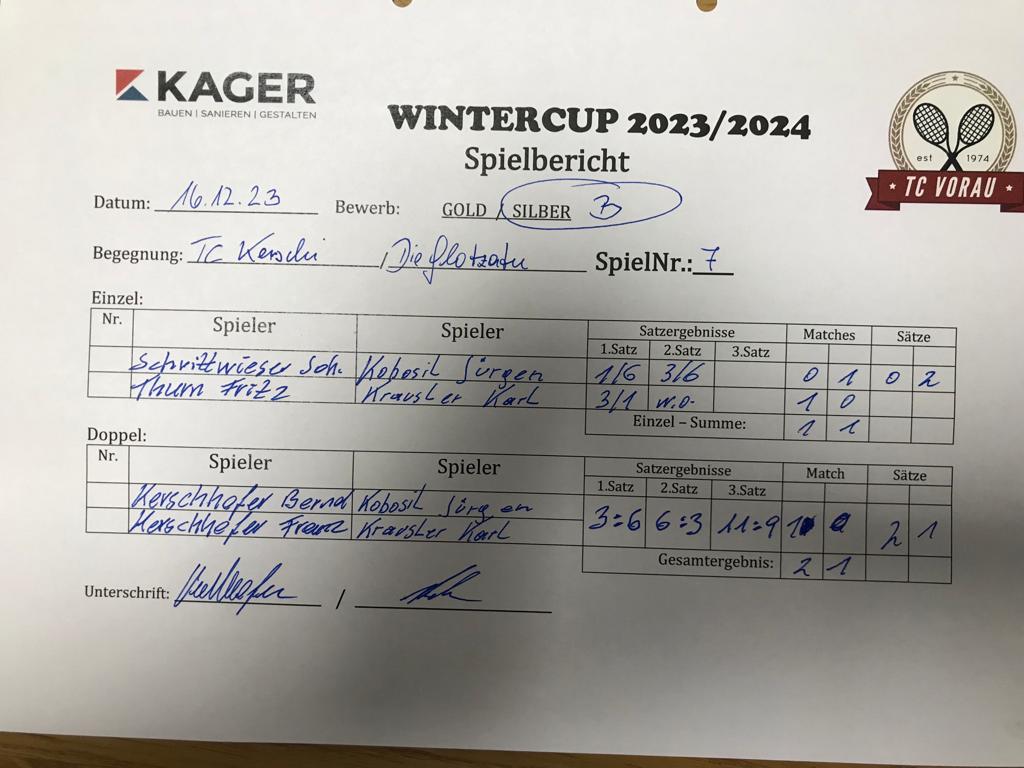 KAGER
BAUEN | SANIEREN | GESTALTEN
WINTERCUP 2023/2024
Spielbericht
est 1974
TC VORAU
Datum: 16.12.23 Bewerb: GOLD / SILBER B
Begegnung: TC Kerschi / Die flotzatn SpielNr.: 7
Einzel:
Nr. Spieler Spieler Satzergebnisse Matches Sätze
1.Satz 2.Satz 3.Satz
Schrittwieser Joh. Kobosil Jürgen 1/6 3/6 0 1 0 2
Thum Fritz Krausler Karl 3/1 w.o. 1 0
Einzel – Summe: 1 1
Doppel:
Nr. Spieler Spieler Satzergebnisse Match Sätze
1.Satz 2.Satz 3.Satz
Kerschhofer Bernd Kobosil Jürgen
Kerschhofer Franz Krausler Karl 3:6 6:3 11:9 1 0 2 1
Gesamtergebnis: 2 1
Unterschrift: /